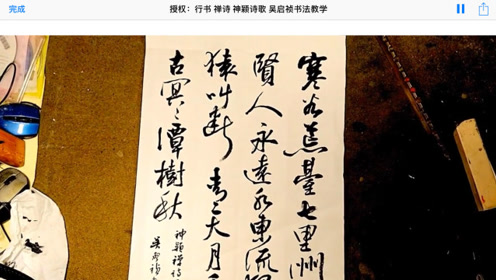 完成
授权：行书 禅诗 神颖诗歌 吴启祯书法教学
寒谷荒臺七里洲
賢人永遠水東流
猿叫斷青天月
古冥〻潭樹秋
神穎禪詩